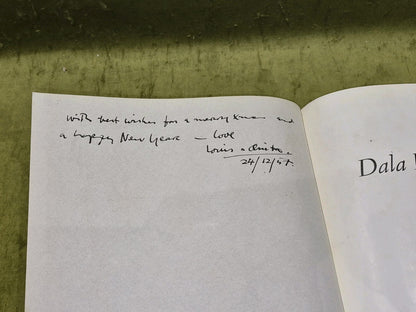 with best wishes for a merry Xmas and
a happy New Year — love
Louis
24/12/
Dala